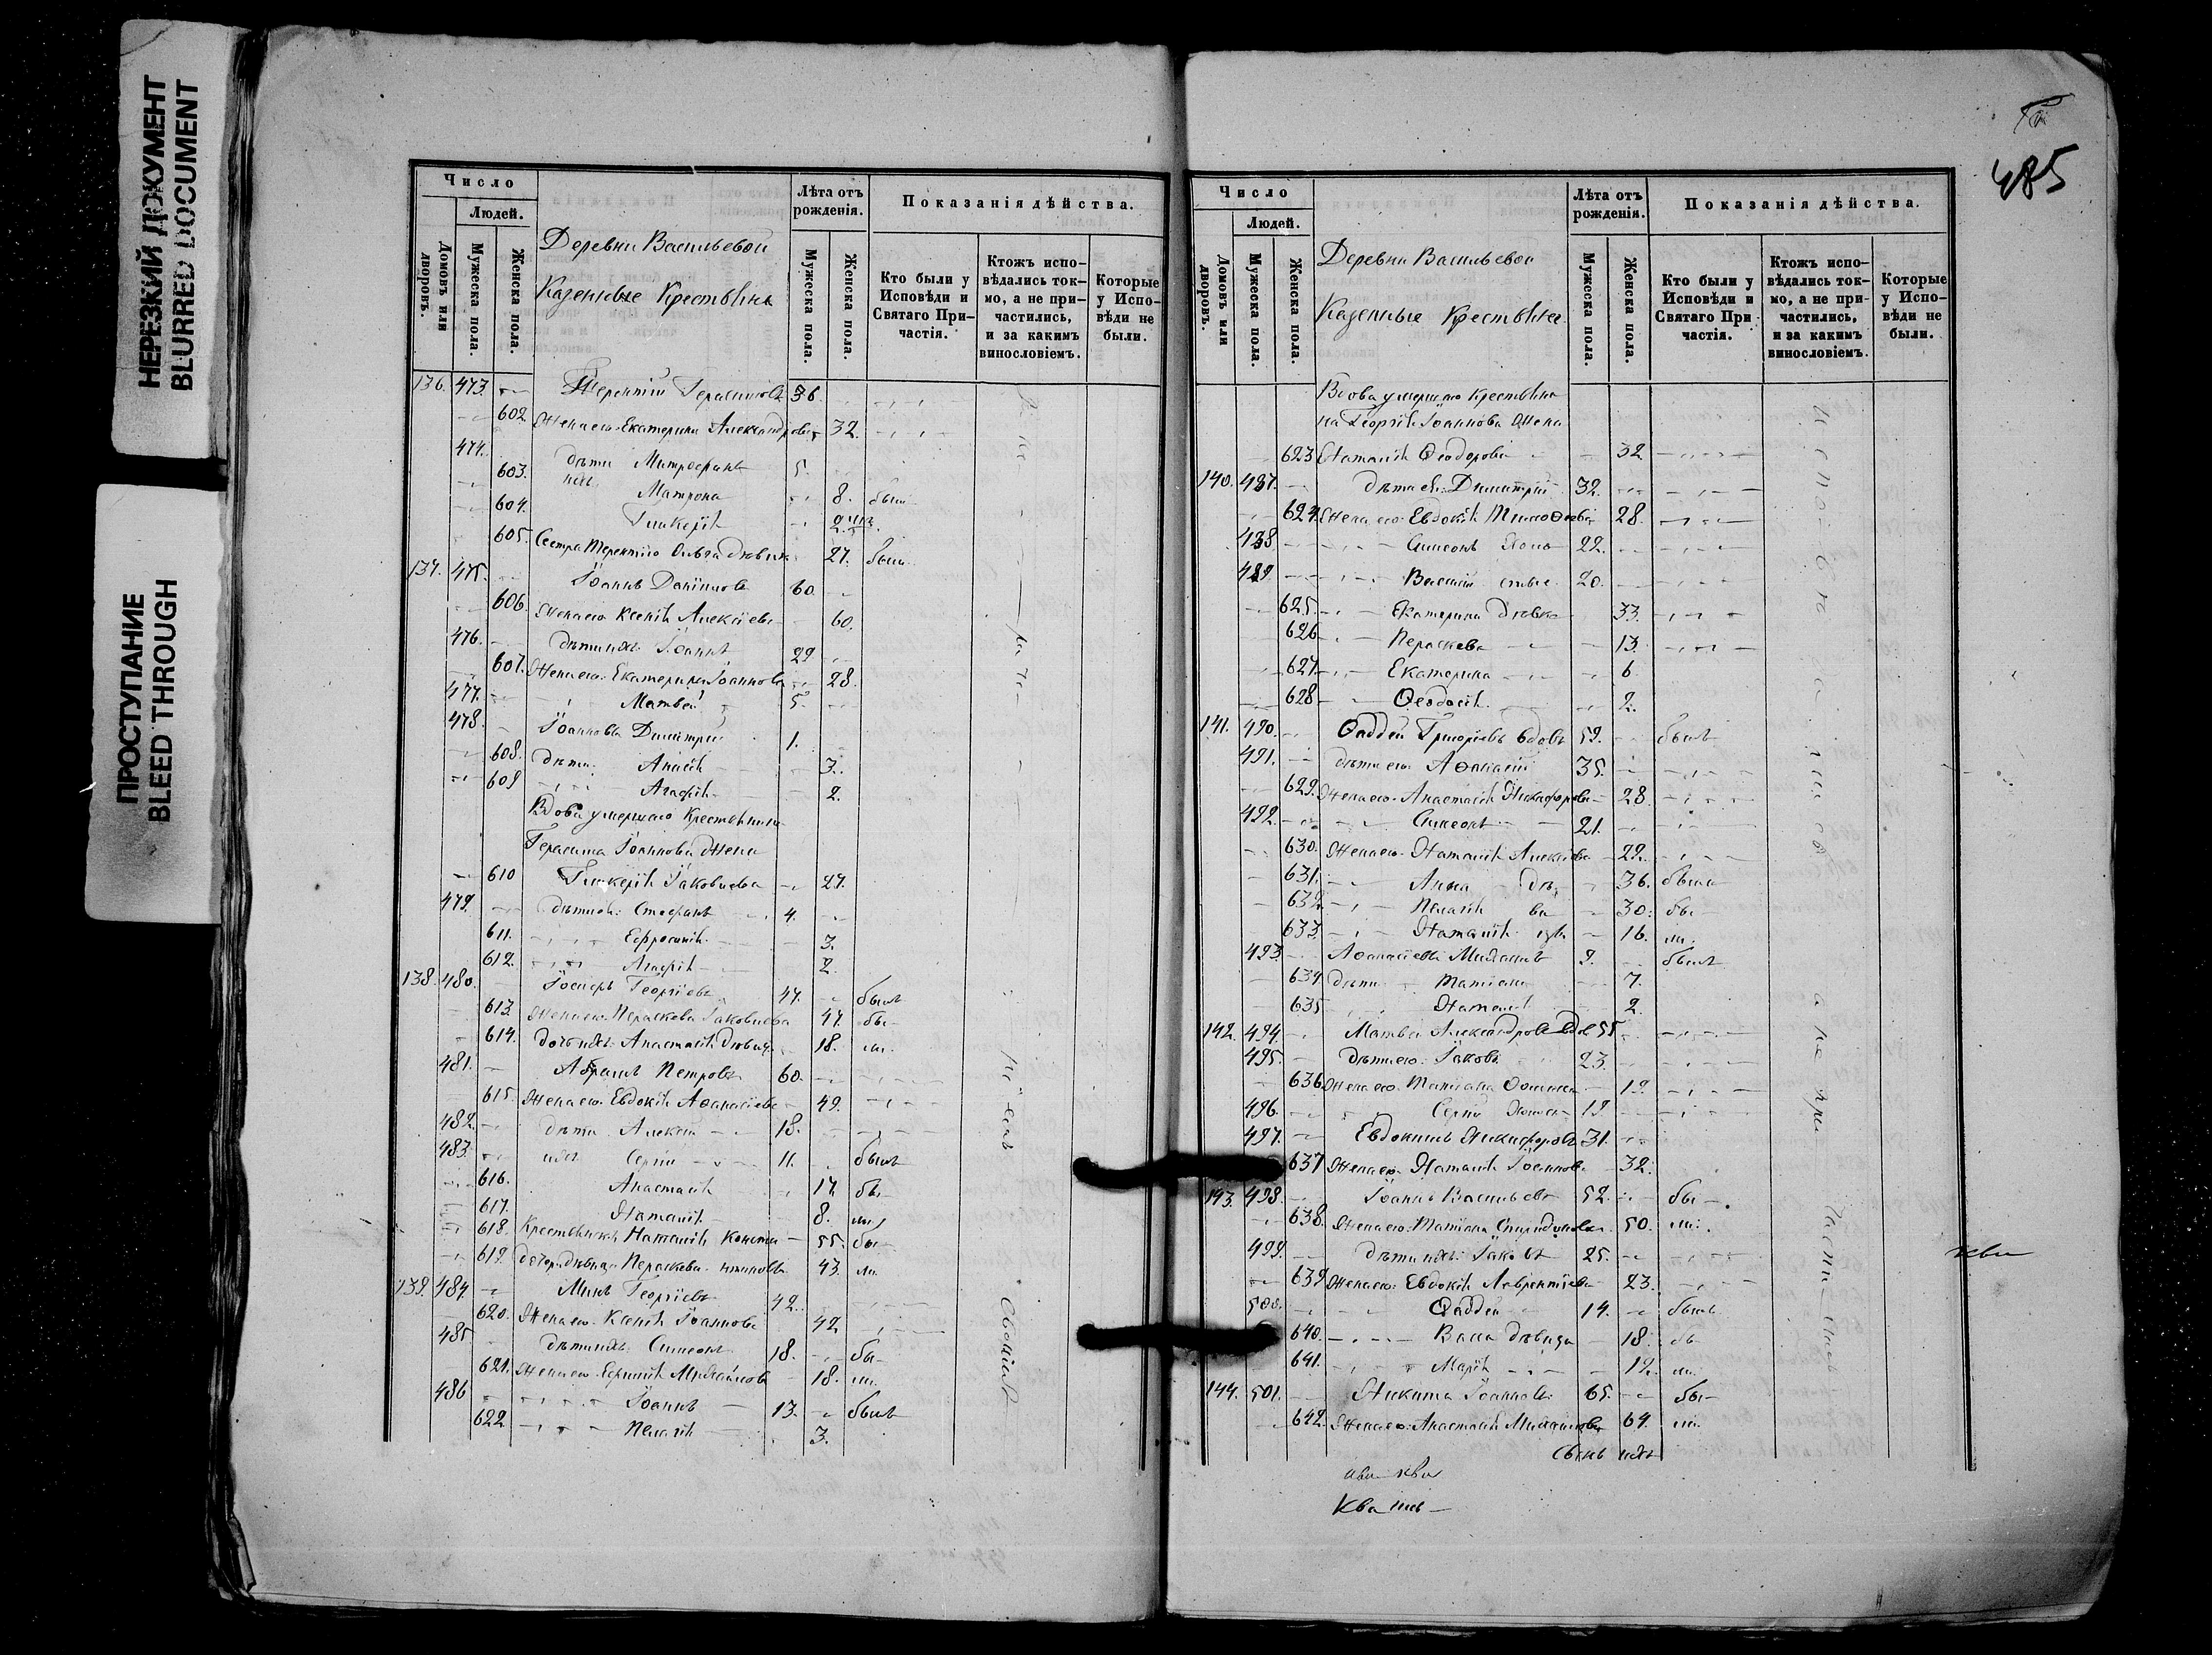 НЕРЕЗКИЙ ДОКУМЕНТ
BLURRED DOCUMENT
ПРОСТУПАНИЕ
BLEED THROUGH
Число
Людей.
Домовъ или дворовъ.
Мужеска пола.
Женска пола.
Деревни Васильевой
Казенные Крестьяне
Лѣта отъ рожденія.
Мужеска пола.
Женска пола.
Показанія дѣйства.
Кто были у Исповѣди и Святаго Причастія.
Ктожъ исповѣдались токмо, а не причастились, и за какимъ винословіемъ.
Которые у Исповѣди не были.
136. 473. Терентій Герасимовъ 36.
602. Жена его Екатерина Александрова 32.
474. дѣти Митрофанъ 5.
603. ихъ Матрона 8. были
604. Гликерія 2
605. Сестра Терентія Ольга дѣвица 27. была
137. 475. Іоаннъ Даніиловъ 60.
606. Жена его Ксенія Алексіева 60.
476. дѣти ихъ Іоаннъ 29
607. Жена его Екатерина Іоаннова 28.
477. Матвей 5.
478. Іоанновы Димитрій 1.
608. дѣти: Анисія 3.
609 Агафія 2.
Вдова умершаго Крестьянина
Герасима Іоаннова Жена
610 Гликерія Іаковлева 27.
479. дѣти ея: Стефанъ 4.
611. Ефросинія 3.
612. Агафія 2.
138. 480. Іосифъ Георгіевъ 47. былъ
613. Жена его Параскева Іаковлева 47. бы-
614. дочь ихъ Анастасія дѣвица 18. ли.
481. Абрамъ Петровъ 60.
615. Жена его Евдокія Аѳанасіева 49.
482. дѣти Алексій 18.
483. ихъ Сергій 11. былъ
616. Анастасія 17. бы-
617. Наталія 8. ли
618. Крестьянка Наталія Конста- 55. бы-
619. дочь дѣвица Параскева нтинова 43. ли
139. 484. Михъ Георгіевъ 42.
620. Жена его Ксенія Іоаннова 42
485. дѣти ихъ Симеонъ 18. бы-
621. Жена его Евфимія Михайлова 18. ли.
486 Іоаннъ 13. былъ
622 Пелагія 3.
485
Число
Людей.
Домовъ или дворовъ.
Мужеска пола.
Женска пола.
Деревни Васильевой
Казенные Крестьяне
Лѣта отъ рожденія.
Мужеска пола.
Женска пола.
Показанія дѣйства.
Кто были у Исповѣди и Святаго При частія.
Ктожъ исповѣдались токмо, а не причастились, и за какимъ винословіемъ.
Которые у Исповѣди не были.
Вдова умершаго крестьяни
на Георгія Іоаннова Жена
623 Наталія Ѳеодорова 32
140. 487. дѣти ея: Димитрій 32.
624. Жена его Евдокія Тимоѳеева 28.
488 Симеонъ Холо 22.
489. Василій стые 20.
625. Екатерина дѣвка 33.
626 Параскева 13.
627. Екатерина 6
628 Ѳеодосія 2.
141. 490. Ѳаддей Григорьевъ вдовъ 59. былъ
491. дѣти его Аѳанасій 35.
629. Жена его Анастасія Никифорова 28.
492. Симеонъ 21.
630. Жена его Наталія Алексіева 22.
631. Анна дѣ- 36. были
632. Пелагія ви 30. бы-
633. Наталія цы 16. ли.
493 Аѳанасіевы Михаилъ 9. былъ
634 дѣти Татіана 7.
635 Наталія 2.
142. 494. Матвей Александровъ вдов 55
495. дѣти его: Іаковъ 23.
636 Жена его Татіана Ѳомина 19.
496. Сергій Холост 19.
497. Евдокимъ Никифоровъ 31.
637 Жена его Наталія Іоаннова 32.
143. 498. Іоаннъ Васильевъ 52. бы-
638. Жена его Татіана Спиридонова 50. ли.
499. дѣти ихъ: Іаковъ 25.
639 Жена его: Евдокія Лаврентіева 23.
500. Ѳаддей 14. былъ
640. Васса дѣвица 18. бы
641. Марія 12. ли.
144. 501. Никита Іоанновъ 65. бы-
642. Жена его: Анастасія Михайлова 64. ли.
Сынъ ихъ